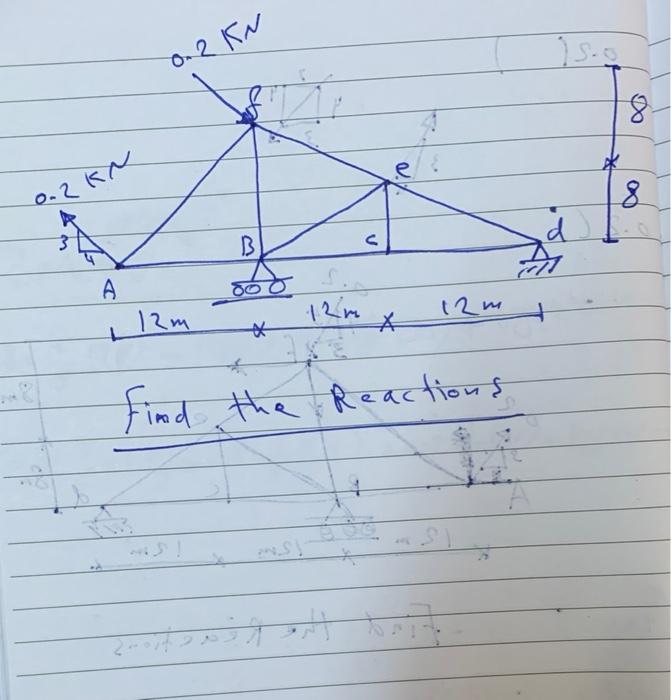 0.2 KN
f
8
0.2 KN
e
3
4
8
B
c
d
A
12m
12m
12m
Find the Reactions